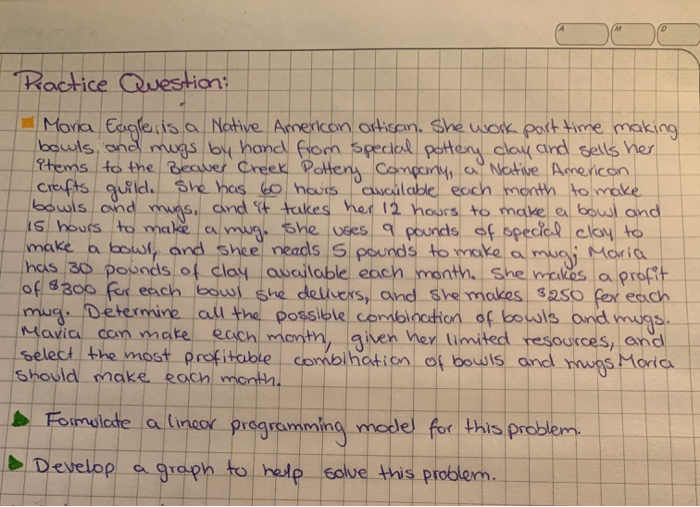 A
M
D
Practice Question:
Maria Eagle, is a Native American artisan. She work part time making
bowls, and mugs by hand from special pottery clay and sells her
items to the Beaver Creek Pottery Company, a Native American
crafts guild. She has 60 hours available each month to make
bowls and mugs, and it takes her 12 hours to make a bowl and
15 hours to make a mug. She uses 9 pounds of special clay to
make a bowl, and shee needs 5 pounds to make a mug; Maria
has 30 pounds of clay available each month. She makes a profit
of $300 for each bowl she delivers, and she makes $250 for each
mug. Determine all the possible combination of bowls and mugs.
Maria can make each month, given her limited resources, and
select the most profitable combination of bowls and mugs Maria
should make each month.
Formulate a linear programming model for this problem.
Develop a graph to help solve this problem.